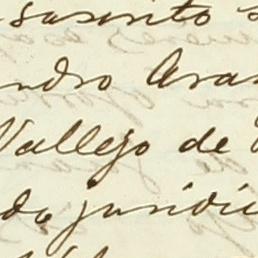 suscrito
ndro Aran
Vallejo de
da juridic